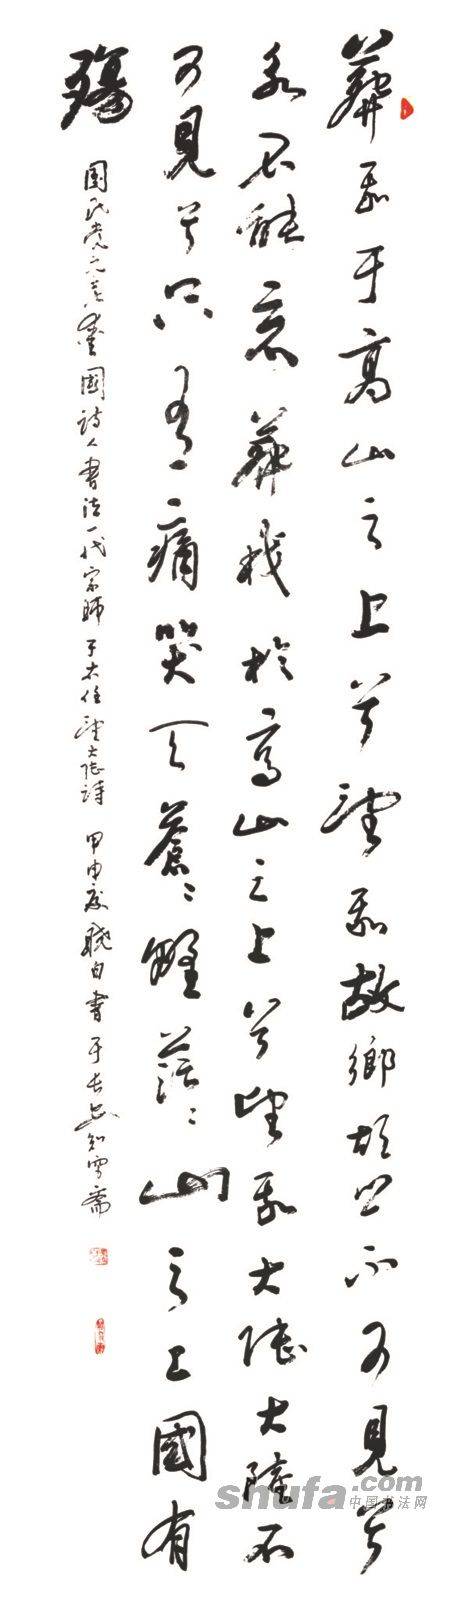 葬我于高山之上兮望我故鄉故鄉不可見兮
永不能忘葬我於高山之上兮望我大陸大陸不
可見兮只有痛哭天蒼〻野茫〻山之上國有
殤
国民党元老愛國詩人書法一代宗師于右任望大陸詩 甲申夏曉白書于长安知雪斋
shufa.com
中国书法网